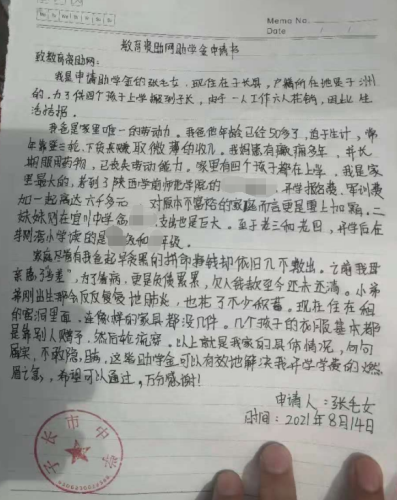 Memo No.
Mo Tu We Th Fr Sa Su
Date / /
教育资助网助学金申请书
致教育资助网:
我是申请助学金的张毛女,现住在子长县,户籍所在地
的。为了供四个孩子上学搬到子长,由于一人工作六人花销,因此生
活拮据。
我爸是家里唯一的劳动力。我爸他年龄已经50多了,迫于生计,常
年靠蹬三轮、下负卖
取微薄的收入。我妈患有癫痫多年,并长
期服用药物,已丧失劳动能力。家里有四个孩子都在上学,我是家
里最大的,考到了陕西学前师范学院的
,开学报名费、军训费
如一起高达六千多元
对原本不富裕的家庭而言更是雪上加霜。二
妹妹则在宜川中学
支出也是巨大。至于老三和老四,开学后在
小学读的是
级和
年级。
家庭尽管有我爸起早贪黑的拼命挣钱却依旧几不敷出。之前我母
亲
,为了看病,更是负债累累,欠人钱款至今还未还清。小弟
弟刚出生那会反反复复地肺炎,也花了不少钱。现在住在租
的窑洞里面,连像样的家具都没几件。几个孩子的衣服基本都
是靠别人赠予,然后轮流穿。以上就是我家的具体情况,句句
属实,不敢隐瞒,这笔助学金可以有效地解决我开学学费的燃
眉之急,希望可以通过,万分感谢!
申请人:张毛女
时间:2021年8月14日
子长市中学